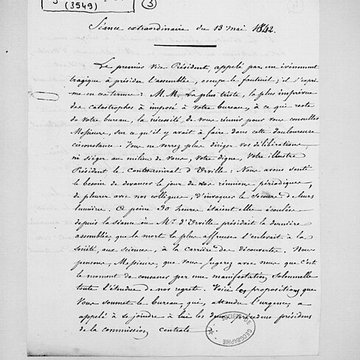 (3949)
(3)
Séance extraordinaire du 13 mai 1842.
Le premier Vice Président, appelé par un évènement
tragique à présider l'assemblée, occupe le fauteuil; il s'exprime
en ces termes: M.M. La plus triste, la plus imprévue
des catastrophes a imposé à votre bureau, à ce qui reste
de votre bureau, la nécessité de vous réunir pour vous consulter
Messieurs, sur ce qu'il y avait à faire dans cette douloureuse
circonstance. Vous ne verrez plus diriger vos délibérations
ni siéger au milieu de vous, votre digne, votre illustre
Président le Contre-amiral d'Urville: Nous avons senti
le besoin de devancer le jour de nos réunions périodiques,
de pleurer avec nos collègues, d'invoquer le secours de leurs
lumières. À peine 30 heures étaient elles écoulées
depuis la séance où Mr. d'Urville présidait la dernière
assemblée, que la mort la plus affreuse l'enlevait à la
Société, aux sciences, à la carrière des découvertes. Nous
pensons, Messieurs, que vous jugerez avec nous que c'est
le moment de consacrer par une manifestation solennelle
toute l'étendue de nos regrets. Voici les propositions que
Vous soumet le bureau, qui, attendu l'urgence, a
appelé à se joindre à lui les deux présidens
de la commission Centrale.